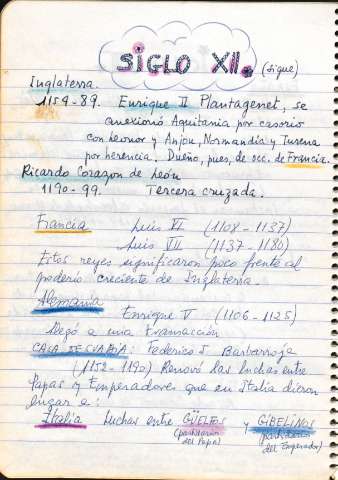 SIGLO XII. (sigue)
Inglaterra.
1154-89. Enrique II Plantagenet, se
anexionó Aquitania por casorio
con Leonor y Anjou, Normandía y Turena
por herencia. Dueño, pues, de occ. de Francia.
Ricardo Corazon de León
1190-99. Tercera cruzada.
Francia Luis VI (1108-1137)
Luis VII (1137-1180)
Estos reyes significaron poco frente al
poderío creciente de Inglaterra.
Alemania
Enrique V (1106-1125)
llegó a una transacción
CASA DE SUABIA: Federico I Barbarroja
(1152-1190) Renovó las luchas entre
Papas y Emperadores que en Italia dieron
lugar a:
Italia Luchas entre GÜELFOS y GIBELINOS
(partidarios del Papa) (partidarios del Emperador)